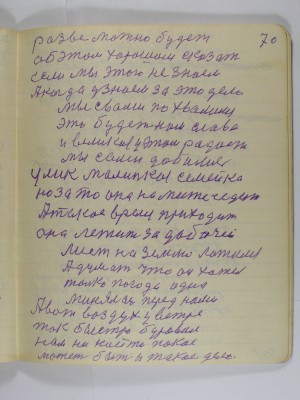 разве можно будет 70
об этом хорошом сказат
если мы этого не знаем
А когда узнаем за это дело
мы с вами по хвалимы
Это будет нам слава
и великая у этом радость
мы сами добилися
у лик малинкая семейка
но за то она на мите сидит
А такое время приходит
она летит за добычей
Мест на земли
А думает что он хожен
толко погода одна
минялас перед нами
А вот воздух у ветре
так быстро буровал
нам на какой то покое
может быт и такое дело.